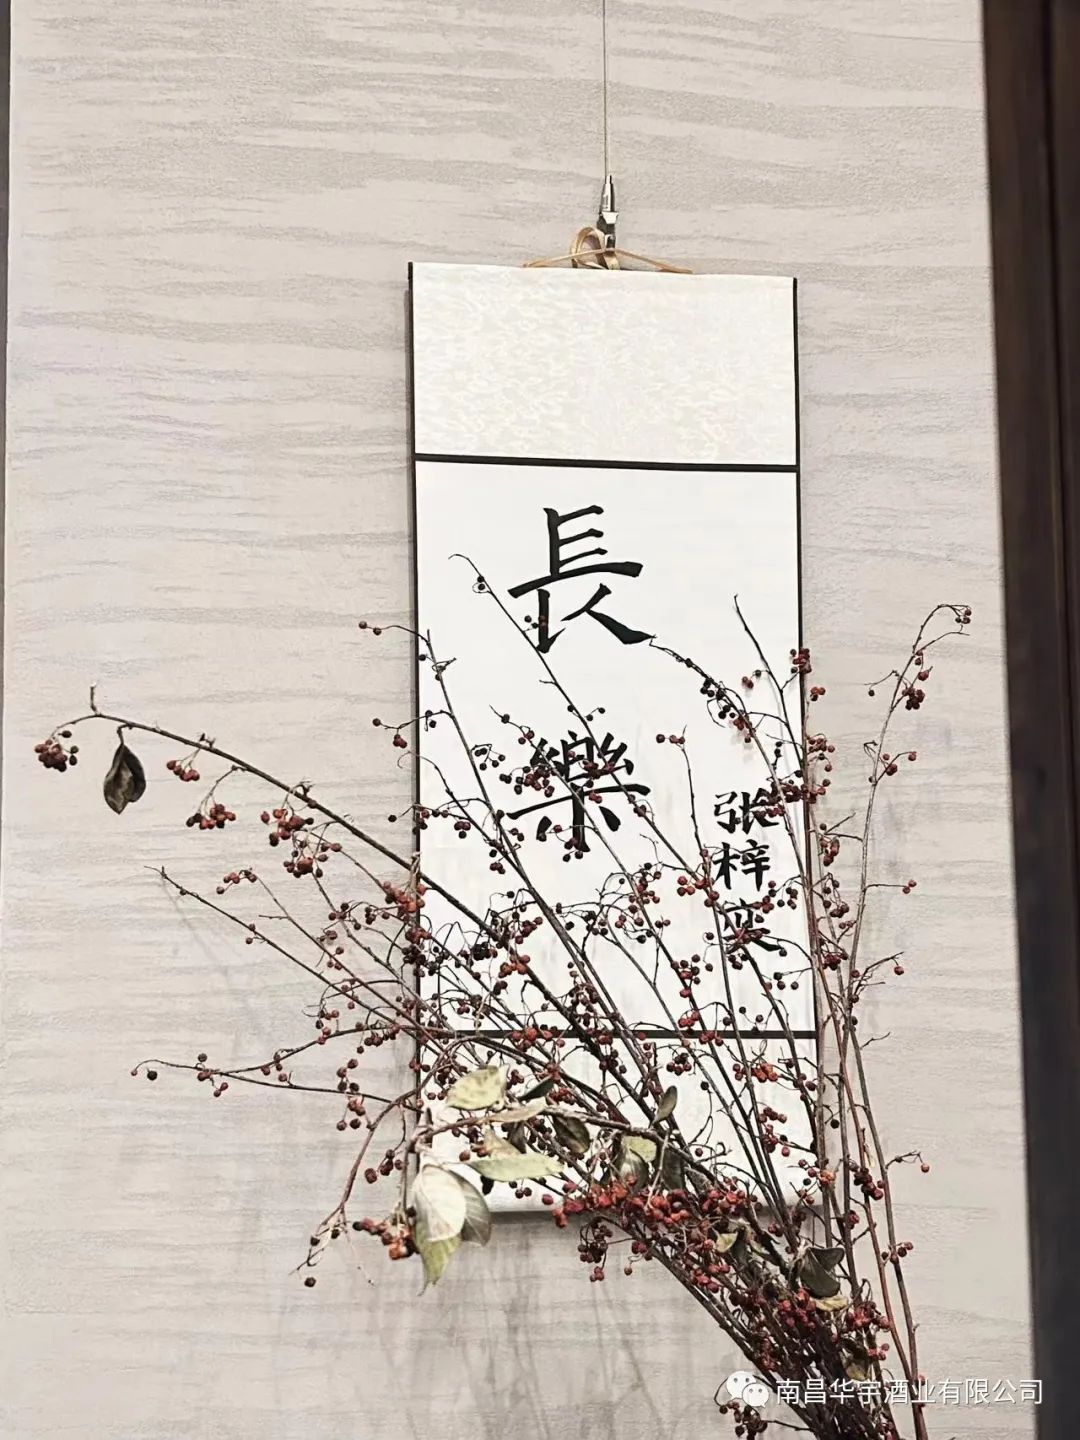 長
樂
张梓奕
南昌华宇酒业有限公司